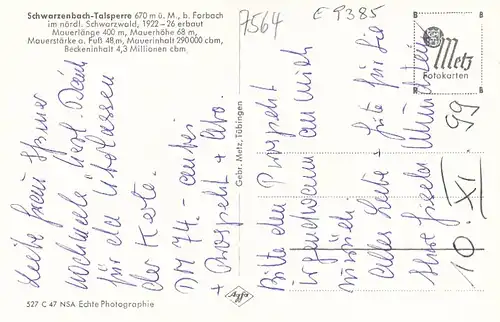 Schwarzenbach-Talsperre 670 m ü. M., b. Forbach
im nördl. Schwarzwald, 1922-26 erbaut
Mauerlänge 400 m, Mauerhöhe 68 m,
Mauerstärke a. Fuß 48 m, Mauerinhalt 290 000 cbm,
Beckeninhalt 4,3 Millionen cbm
7564
E 9385
Metz
Fotokarten
B
B
B
B
Liebe Frau
nochmals herzl. Dank
für das Überlassen
der Karte.
DM 74.- anbei
+ Prospekt + Abo.
Gebr. Metz, Tübingen
Bitte den Prospekt
irgendwann an mich
zurück.
Alles Liebe + Gute für Sie
Ihre Gisela
10. XI. 99
527 C 47 NSA Echte Photographie
Agfa